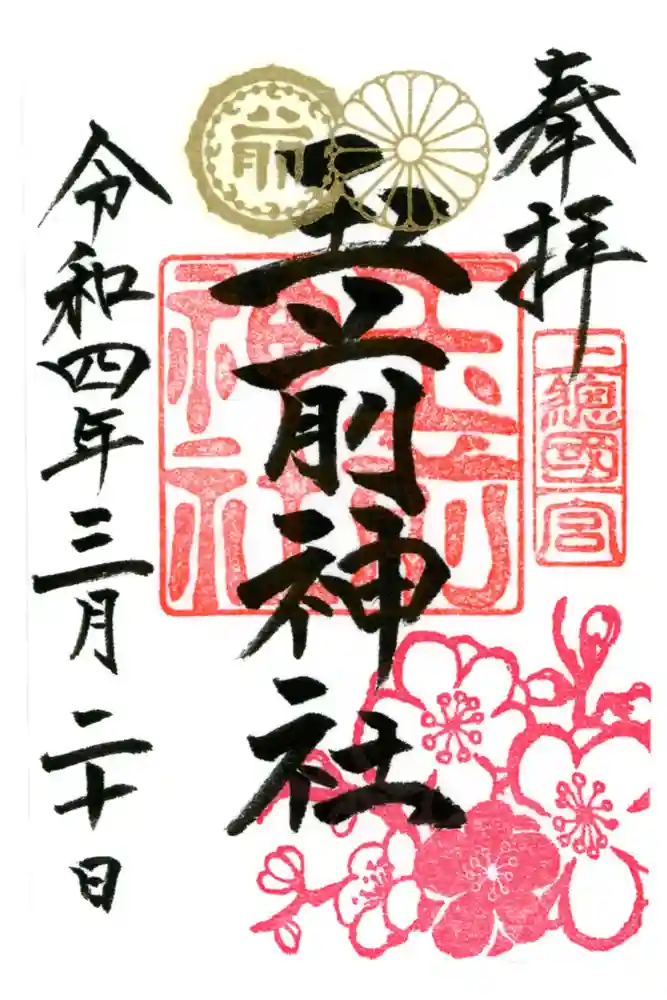 奉拝
上總國一宮
前
玉前神社
玉前神社
令和四年三月二十日